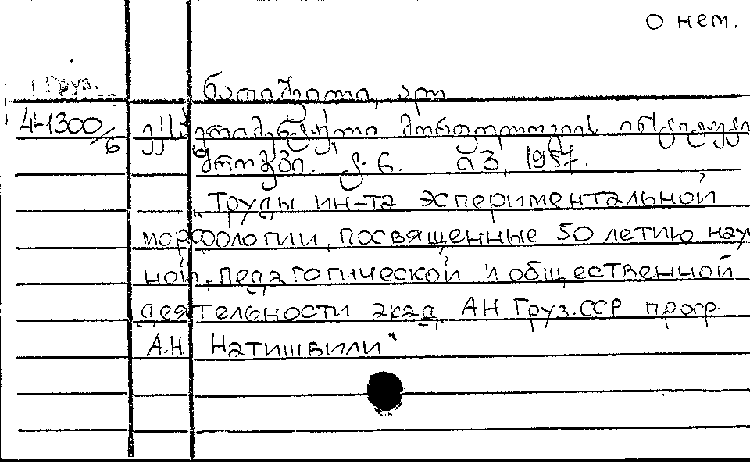 о нем.
Груз. ნათიშვილი, ალ
4-1300/6 ექსპერიმენტული მორფოლოგიის ინსტიტუტის
შრომები. ტ. 6. თბ, 1957.
"Труды ин-та эспериментальной
морфологии, посвященные 50 летию науч
ной, педагогической и общественной
деятельности акад АН Груз.ССР проф
А.Н. Натишвили"